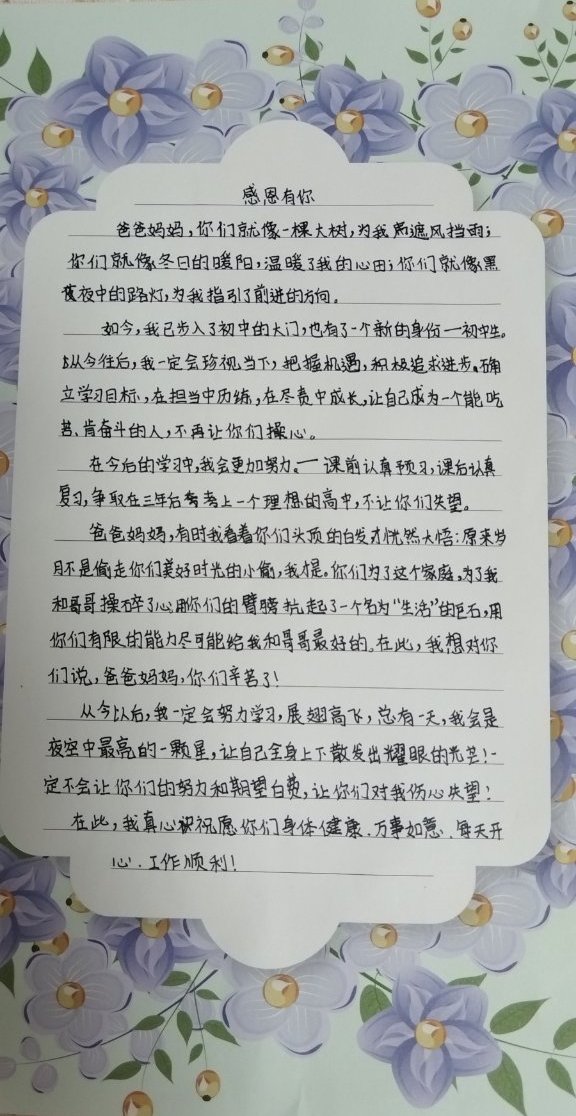 感恩有你
爸爸妈妈，你们就像一棵大树，为我遮风挡雨；
你们就像冬日的暖阳，温暖了我的心田；你们就像黑
夜中的路灯，为我指引了前进的方向。
如今，我已步入了初中的大门，也有了一个新的身份——初中生。
从今往后，我一定会珍视当下，把握机遇，积极追求进步。确
立学习目标，在担当中历练，在尽责中成长，让自己成为一个能吃
苦、肯奋斗的人，不再让你们操心。
在今后的学习中，我会更加努力。——课前认真预习，课后认真
复习，争取在三年后考上一个理想的高中，不让你们失望。
爸爸妈妈，有时我看着你们头顶的白发才恍然大悟：原来岁
月不是偷走你们美好时光的小偷，我才是。你们为了这个家庭，为了我
和哥哥操碎了心，用你们的臂膀抗起了一个名为“生活”的巨石，用
你们有限的能力尽可能给我和哥哥最好的。在此，我想对你
们说，爸爸妈妈，你们辛苦了！
从今以后，我一定会努力学习，展翅高飞，总有一天，我会是
夜空中最亮的一颗星，让自己全身上下散发出耀眼的光芒！一
定不会让你们的努力和期望白费，让你们对我伤心失望！
在此，我真心祝愿你们身体健康、万事如意、每天开
心、工作顺利！